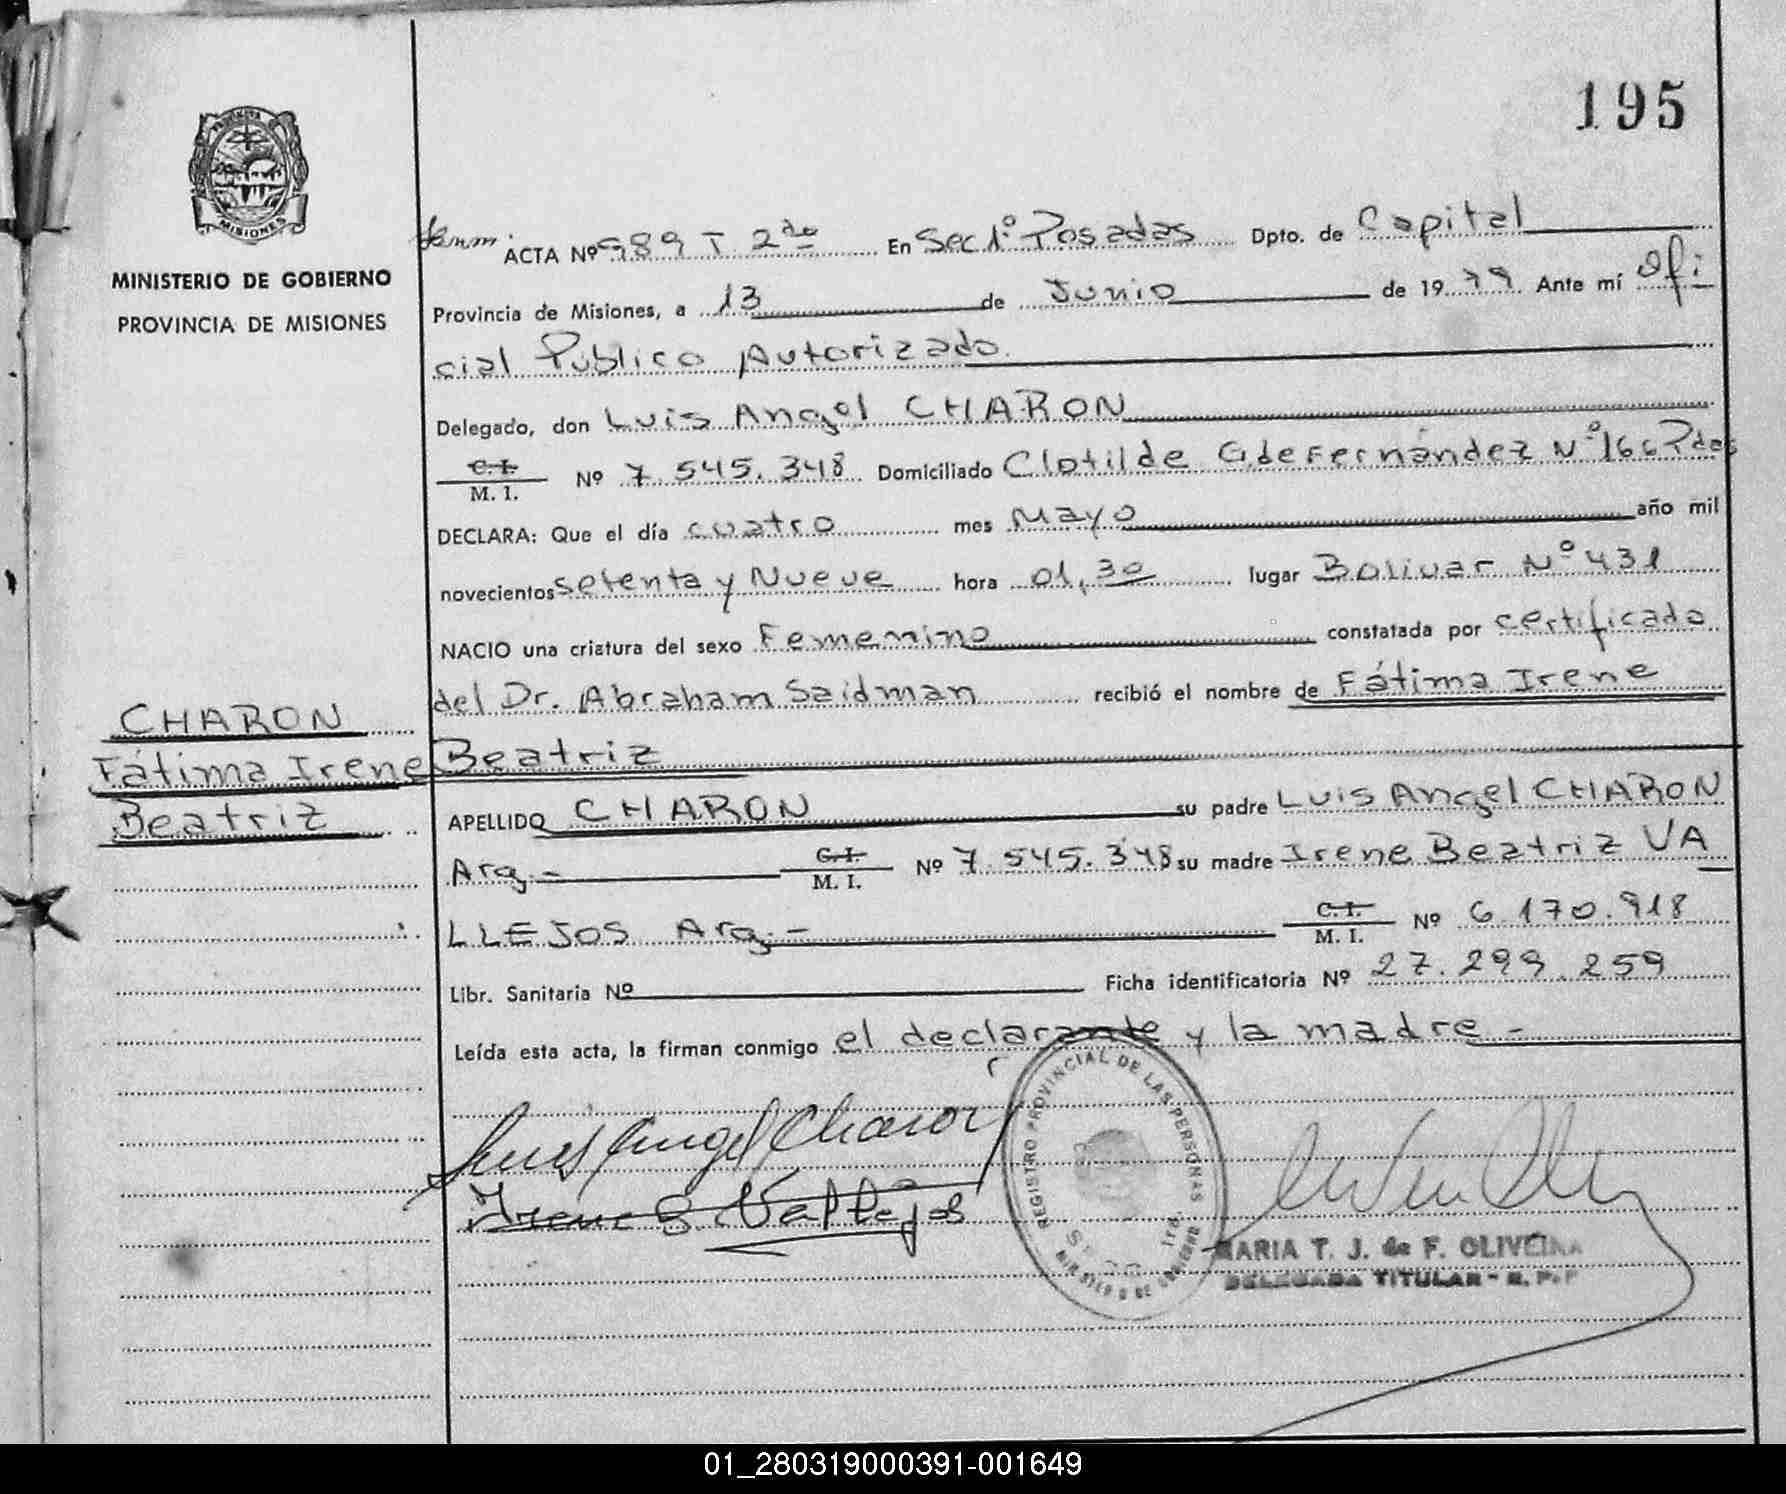 195
MISIONES
MINISTERIO DE GOBIERNO
PROVINCIA DE MISIONES
ACTA Nº 989 T 2do En Sec 1º Posadas Dpto. de Capital
Provincia de Misiones, a 13 de Junio de 1979 Ante mí Ofi
cial Público Autorizado.
Delegado, don Luis Angel CHARON
C. I. / M. I. Nº 7.545.348 Domiciliado Clotilde G de Fernández Nº 166 Pdas
DECLARA: Que el día cuatro mes Mayo año mil
novecientos setenta y Nueve hora 01,30 lugar Bolivar Nº 431
NACIO una criatura del sexo Femenino constatada por certificado
del Dr. Abraham Saidman recibió el nombre de Fátima Irene
Beatriz
CHARON
Fátima Irene
Beatriz
APELLIDO CHARON su padre Luis Angel CHARON
Arg.- C. I. / M. I. Nº 7.545.348 su madre Irene Beatriz VA
LLEJOS Arg.- C. I. / M. I. Nº 6.170.918
Libr. Sanitaria Nº Ficha identificatoria Nº 27.299.259
Leída esta acta, la firman conmigo el declarante y la madre -
Luis Angel Charon
Irene B Vallejos
REGISTRO PROVINCIAL DE LAS PERSONAS
MINISTERIO DE GOBIERNO
MARIA T. J. de F. OLIVEIRA
DELEGADA TITULAR - R. P. P
01_280319000391-001649